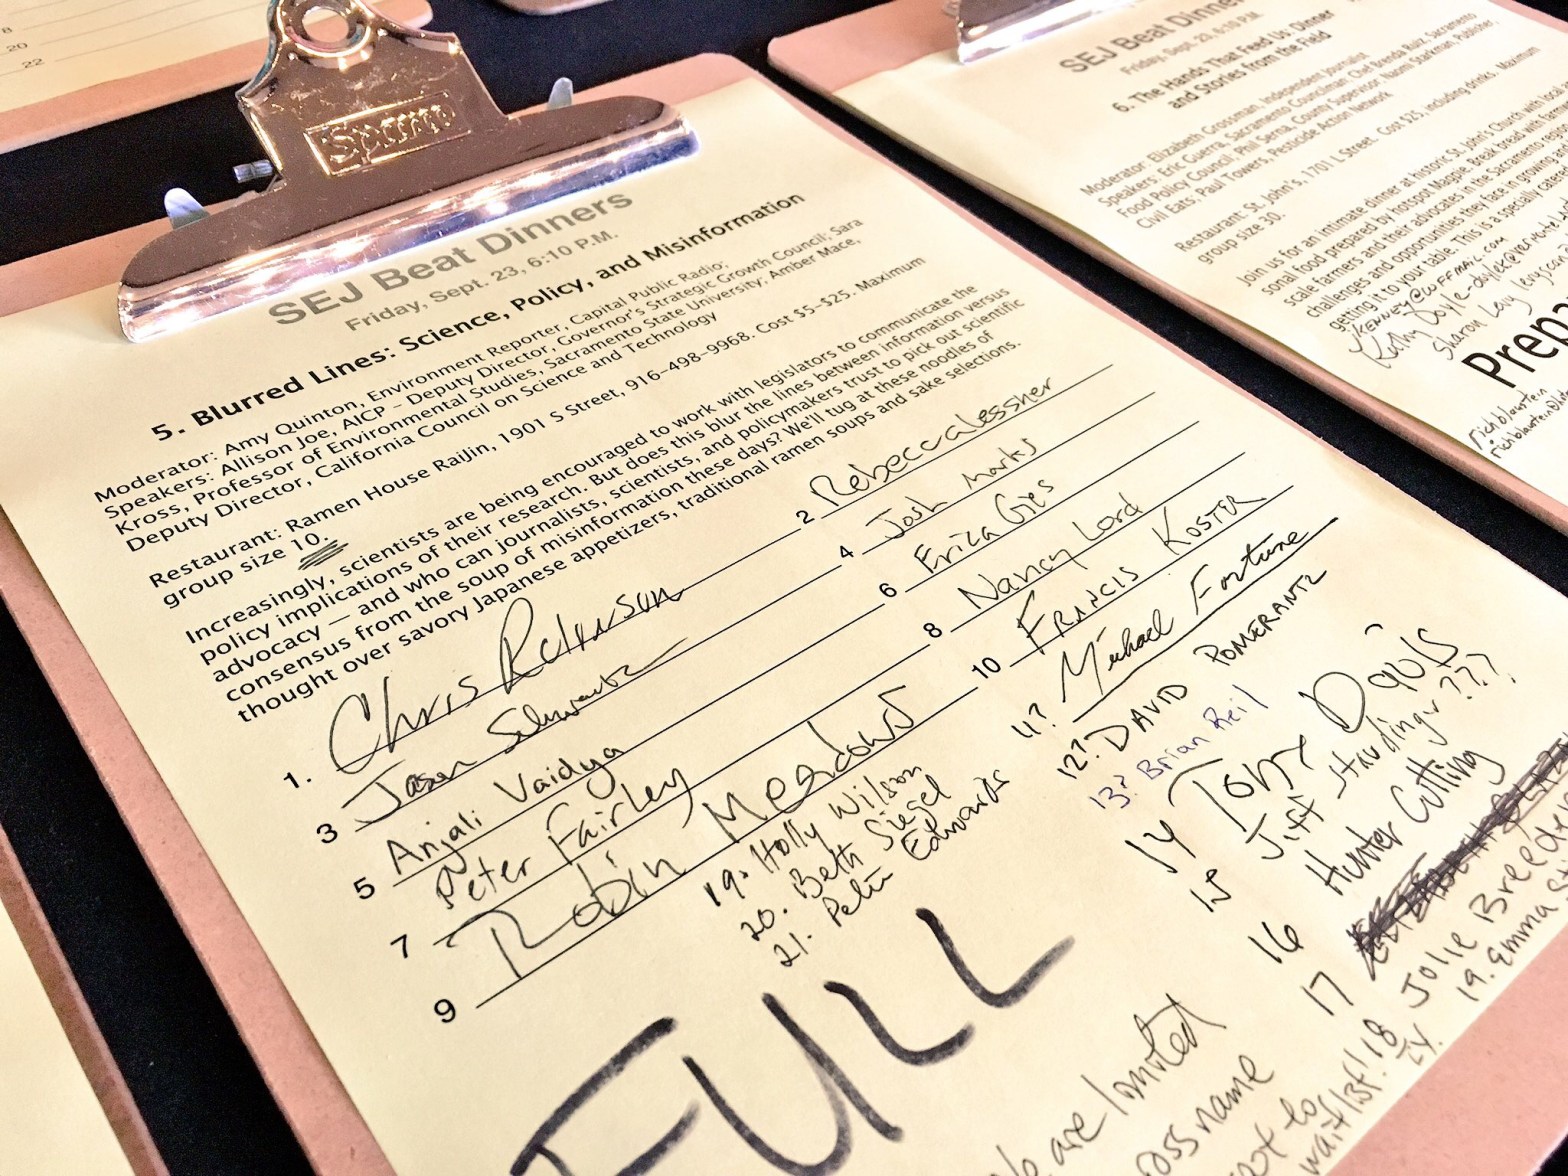 8
20
22
Sparco
SEJ Beat Dinners
Friday, Sept. 23, 6:10 P.M.
5. Blurred Lines: Science, Policy, and Misinformation
Moderator: Amy Quinton, Environment Reporter, Capital Public Radio;
Speakers: Allison Joe, AICP – Deputy Director, Governor's Strategic Growth Council; Sara
Kross, Professor of Environmental Studies, Sacramento State University, Amber Mace,
Deputy Director, California Council on Science and Technology
Restaurant: Ramen House Raijin, 1901 S Street, 916-498-9968. Cost $5-$25. Maximum
group size 10.
Increasingly, scientists are being encouraged to work with legislators to communicate the
policy implications of their research. But does this blur the lines between information versus
advocacy — and who can journalists, scientists, and policymakers trust to pick out scientific
consensus from the soup of misinformation these days? We'll tug at these noodles of
thought over savory Japanese appetizers, traditional ramen soups and sake selections.
1. Chris
2 Rebecca Lessner
3 Jason Schwartz
4 Josh Marks
5 Anjali Vaidya
6 Erica Gies
7 Peter Fairley
8 Nancy Lord
9 Robin Meadows
10 Francis Koster
11? Michael Fortune
12? DAVID POMERANTZ
13? Brian Reil
14 Tony Davis
15 Jeff Standinger???
16 Hunter Cutting
17
18 Jolie Breeden
19. Emma
19. Holly Wilson
20. Beth Siegel
21. Pete Edwards
FULL
are limited
name
wait list!
SEJ Beat Dinners
Friday, Sept. 23, 6 P.M.
6. The Hands That Feed Us: Dinner
and Stories From the Field
Moderator: Elizabeth Grossman, Independent Journalist
Speakers: Eric Guerra, Sacramento Councilman; Che Brenda Ruiz, Sacramento
Food Policy Council, Phil Serna, County Supervisor; Naomi Starkman, Publisher,
Civil Eats, Paul Towers, Pesticide Action Network
Restaurant: St. John's, 1701 L Street. Cost $25, including drinks. Maximum
group size 30.
Join us for an intimate dinner at historic St. John's Church with local
sonal food prepared by hotspot Magpie. Break bread with
scale farmers and their advocates in the Sacramento
challenges and opportunities they face in growing
getting it to your table. This is a specially
Kathy
Sharon Levy
Prep
rich